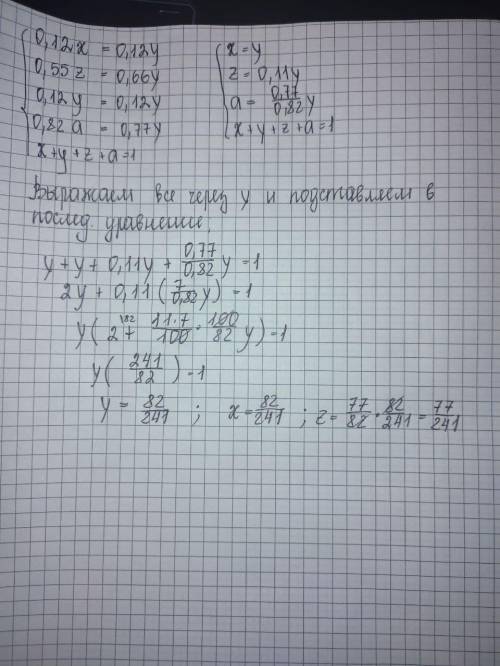 0,12x = 0,12y
0,55z = 0,66y
0,12y = 0,12y
0,82a = 0,77y
x+y+z+a=1
x=y
z=0,11y
a= 0,77/0,82 y
x+y+z+a=1
Выражаем все через y и подставляем в
послед. уравнение;
y+y+0,11y+ 0,77/0,82 y =1
2y+0,11(7/0,82 y) =1
y(2+ 11·7/100 · 100/82 y) =1
y(241/82) =1
y= 82/241 ; x= 82/241 ; z= 77/82 · 82/241 = 77/241